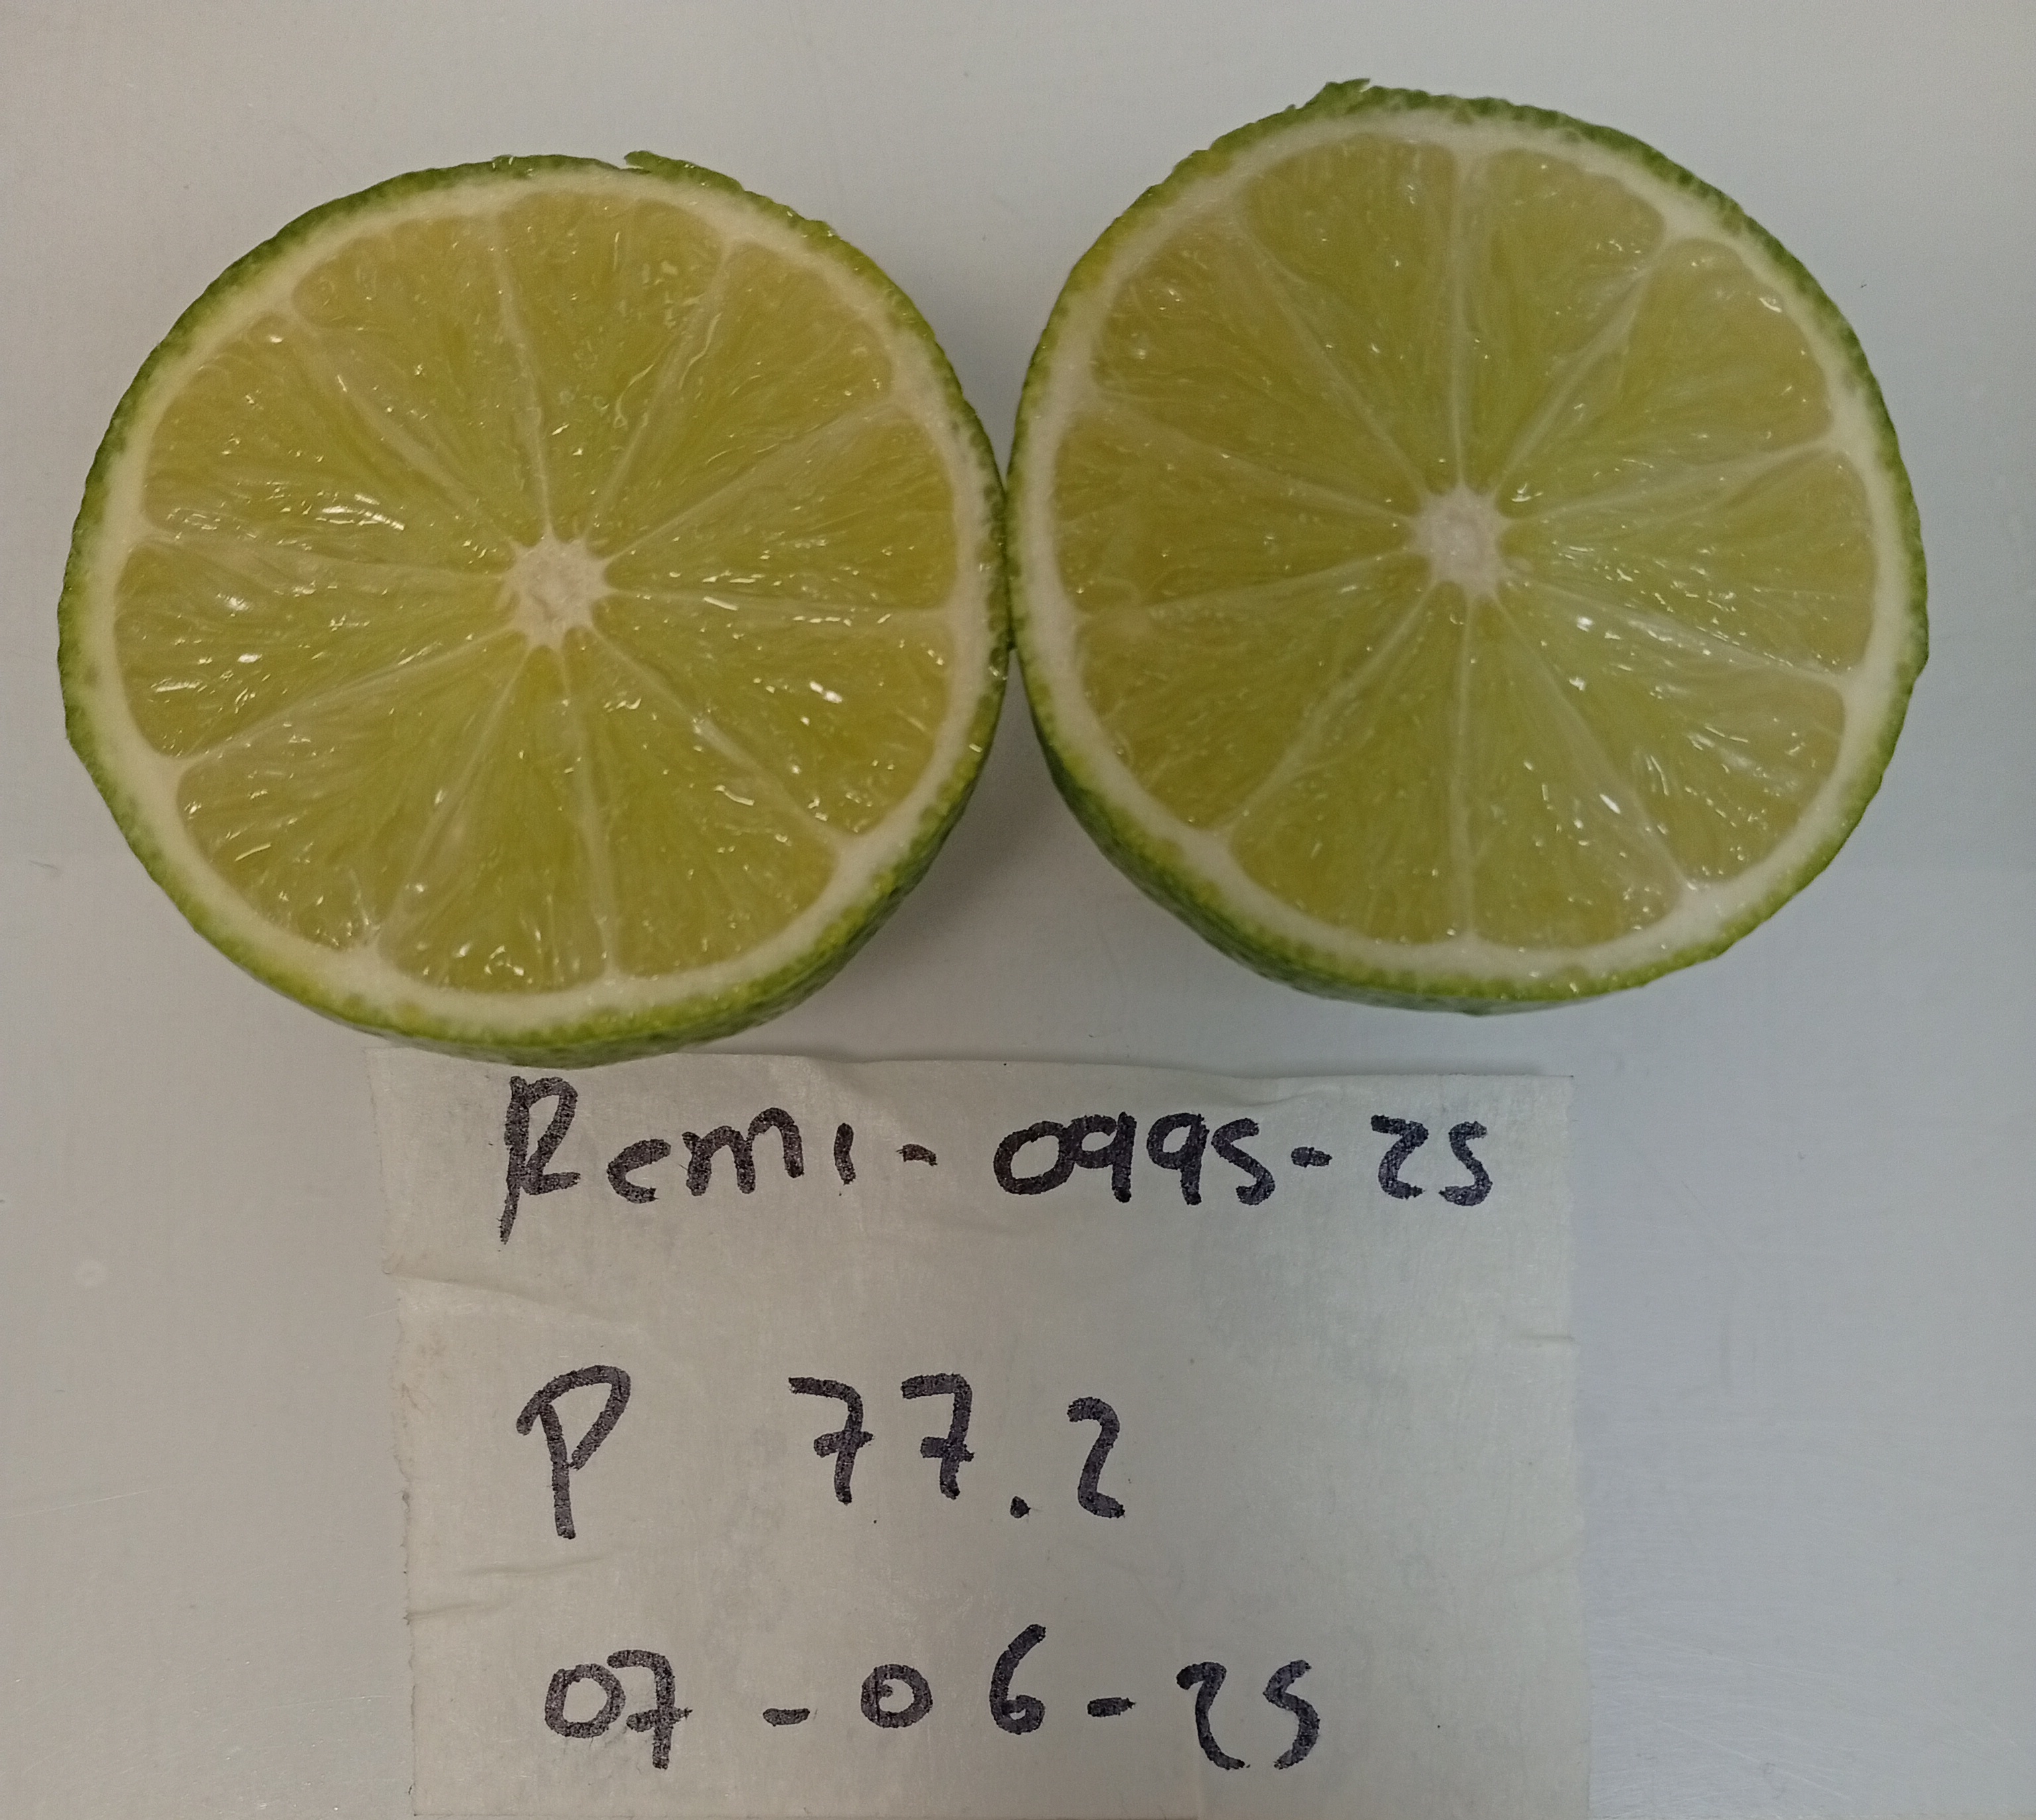 Remi-0995-25
P 77.2
07-06-25